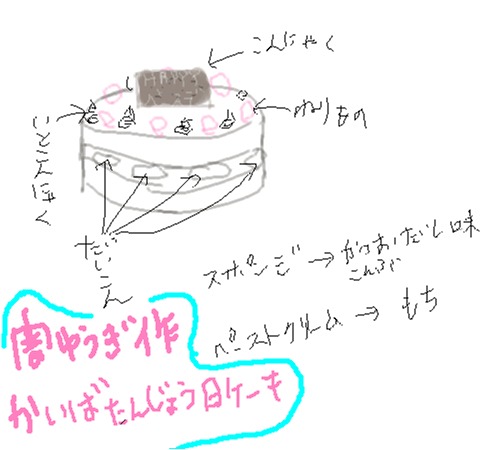 こんにゃく
HAPPY
ねりもの
いとこんにゃく
だいこん
スポンジ→かつおだし味
こんぶ
ペーストクリーム→もち
闇ゆうぎ作
かいばたんじょう日ケーキ